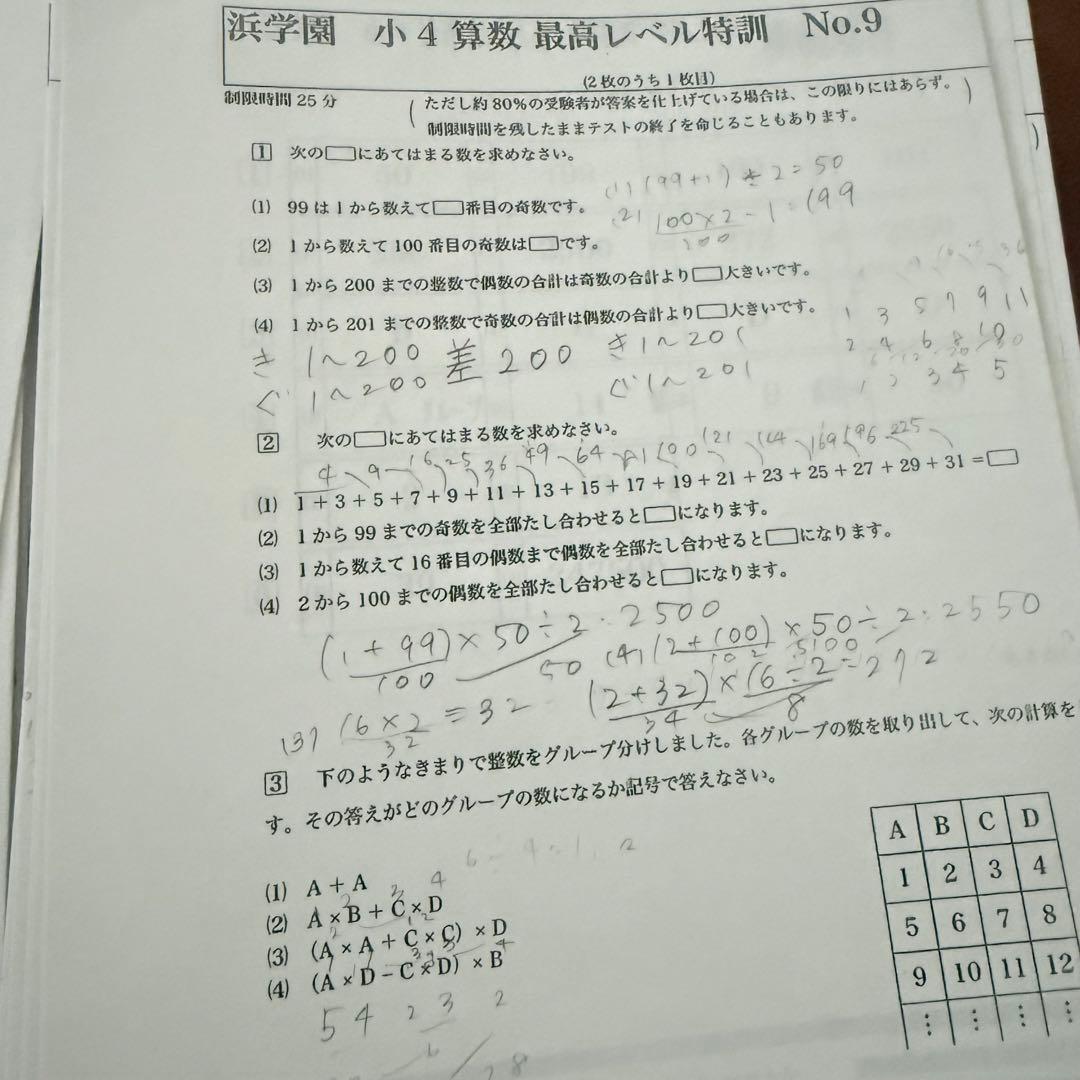 浜学園 小4算数 最高レベル特訓 No.9
(2枚のうち1枚目)
制限時間25分
(ただし約80%の受験者が答案を仕上げている場合は、この限りにはあらず。
制限時間を残したままテストの終了を命じることもあります。)
1 次の□にあてはまる数を求めなさい。
(1) (99+1)÷2=50
(1) 99は1から数えて□番目の奇数です。
(2) 100×2-1=199
200
(2) 1から数えて100番目の奇数は□です。
(3) 1から200までの整数で偶数の合計は奇数の合計より□大きいです。
(4) 1から201までの整数で奇数の合計は偶数の合計より□大きいです。
1 3 5 7 9 11
き 1~200 差200 き1~201
ぐ 1~200 ぐ1~201
2 次の□にあてはまる数を求めなさい。
4 9 16 25 36 49 64 81 100 121 144 169 196 225
(1) 1+3+5+7+9+11+13+15+17+19+21+23+25+27+29+31=□
(2) 1から99までの奇数を全部たし合わせると□になります。
(3) 1から数えて16番目の偶数まで偶数を全部たし合わせると□になります。
(4) 2から100までの偶数を全部たし合わせると□になります。
(1+99)×50÷2=2500
100 50
(4) (2+100)×50÷2=2550
102 5100
(3) 16×2=32 (2+32)×16÷2=272
32 34 8
3 下のようなきまりで整数をグループ分けしました。各グループの数を取り出して、次の計算を
す。その答えがどのグループの数になるか記号で答えなさい。
(1) A+A
(2) A×B+C×D
(3) (A×A+C×C)×D
(4) (A×D-C×D)×B
A B C D
1 2 3 4
5 6 7 8
9 10 11 12
⋮ ⋮ ⋮ ⋮
5 4 2 3 2